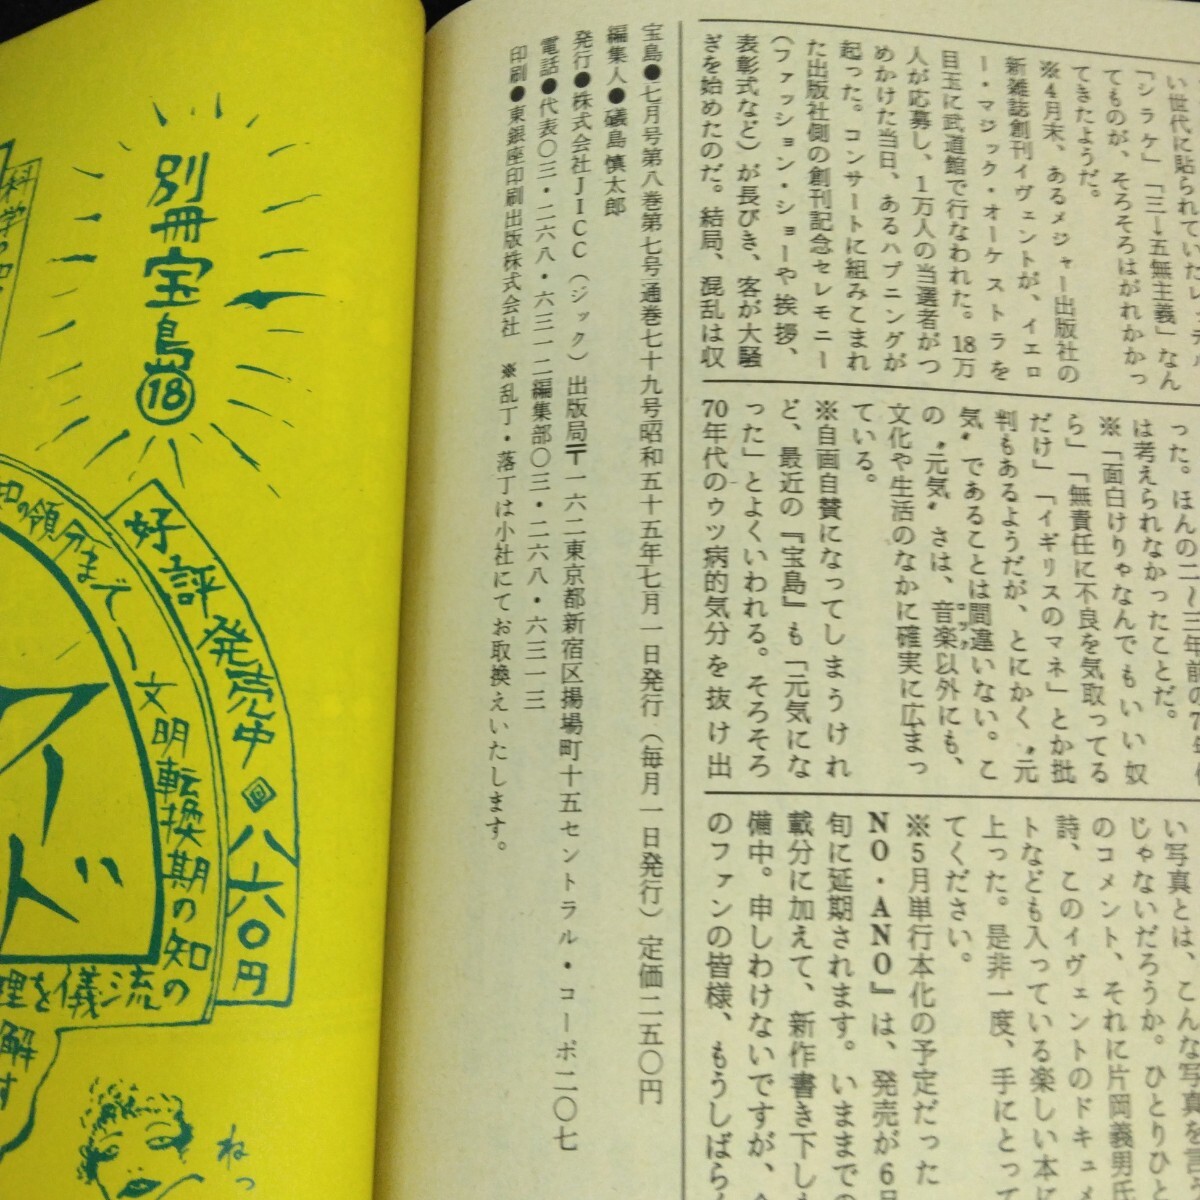 い世代に貼られていたレッテル
「シラケ」「三→五無主義」なん
てものが、そろそろはがれかかっ
てきたようだ。
※4月末、あるメジャー出版社の
新雑誌創刊イヴェントが、イエロ
ー・マジック・オーケストラを
目玉に武道館で行なわれた。18万
人が応募し、1万人の当選者がつ
めかけた当日、あるハプニングが
起った。コンサートに組みこまれ
た出版社側の創刊記念セレモニー
(ファッション・ショーや挨拶、
表彰式など)が長びき、客が大騒
ぎを始めたのだ。結局、混乱は収
った。ほんの二〜三年前の
は考えられなかったことだ。
※「面白けりゃなんでもいい奴
ら」「無責任に不良を気取ってる
だけ」「イギリスのマネ」とか批
判もあるようだが、とにかく〝元
気〟であることは間違いない。こ
の〝元気〟さは、音楽以外にも、
文化や生活のなかに確実に広まっ
ている。
※自画自賛になってしまうけれ
ど、最近の『宝島』も「元気にな
った」とよくいわれる。そろそろ
70年代のウツ病的気分を抜け出
い写真とは、こんな写真を言
じゃないだろうか。ひとりひと
のコメント、それに片岡義男氏
詩、このイヴェントのドキュメ
トなども入っている楽しい本に
上った。是非一度、手にとって
てください。
※5月単行本化の予定だった
NO・ANO』は、発売が6月
旬に延期されます。いままでの
載分に加えて、新作書き下し
備中。申しわけないですが、
のファンの皆様、もうしばらく
宝島●七月号第八巻第七号通巻七十九号昭和五十五年七月一日発行(毎月一日発行)定価二五〇円
編集人●礒島慎太郎
発行●株式会社JICC(ジック)出版局〒一六二東京都新宿区揚場町十五セントラル・コーポ二〇七
電話●代表〇三・二六八・六三一二編集部〇三・二六八・六三一三
印刷●東銀座印刷出版株式会社 ※乱丁・落丁は小社にてお取換えいたします。
別冊宝島⑱
好評発売中 八六〇円
知の領分まで―文明転換期の知の
理を儀流
解
す
ド
ねっ